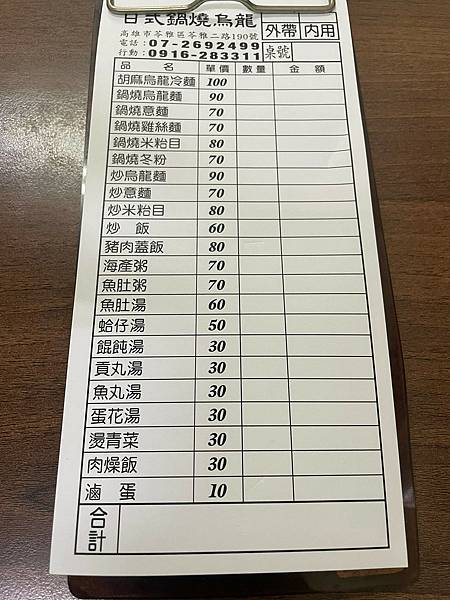 日式鍋燒烏龍
高雄市苓雅區苓雅二路190號
電話:07-2692499
行動:0916-283311
外帶 內用
桌號
品名 單價 數量 金額
胡麻烏龍冷麵 100
鍋燒烏龍麵 90
鍋燒意麵 70
鍋燒雞絲麵 70
鍋燒米粉目 80
鍋燒冬粉 70
炒烏龍麵 90
炒意麵 70
炒米粉目 80
炒飯 60
豬肉蓋飯 80
海產粥 70
魚肚粥 70
魚肚湯 60
蛤仔湯 50
餛飩湯 30
貢丸湯 30
魚丸湯 30
蛋花湯 30
燙青菜 30
肉燥飯 30
滷蛋 10
合計